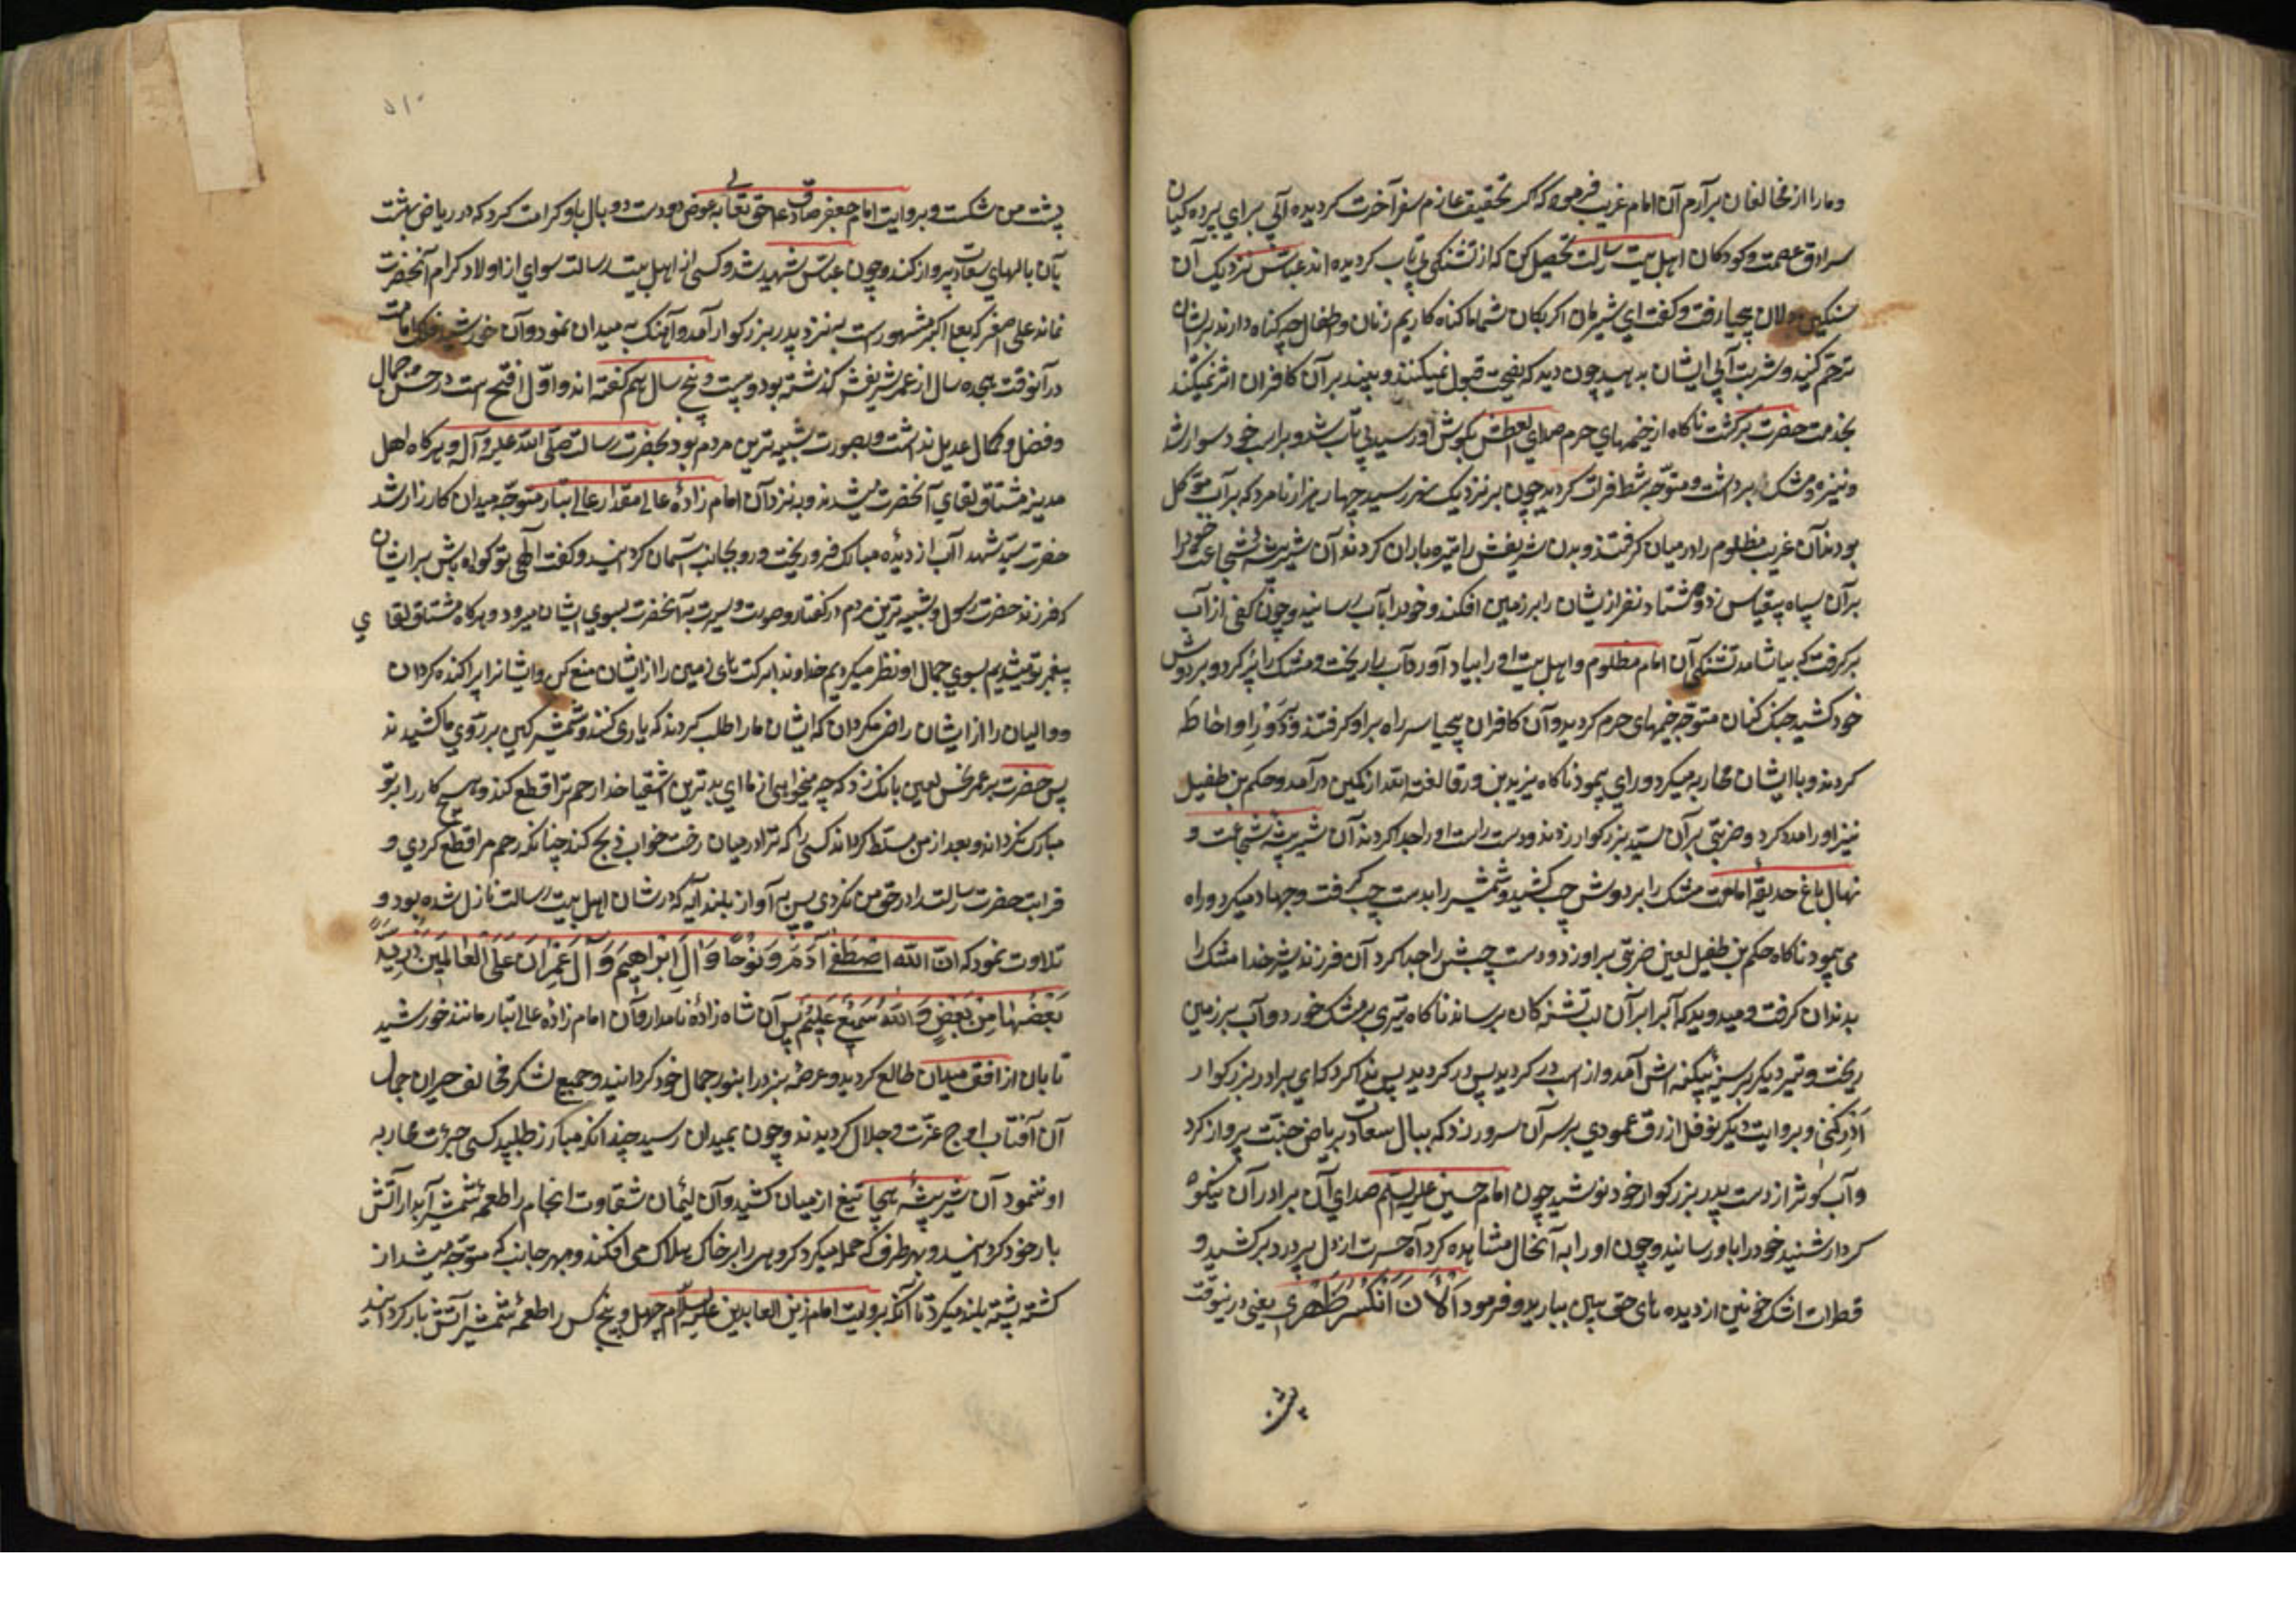 ومارا از مخالفان برآرم آن امام غریب فرمود که اگر بتحقیق عازم سفر آخرت گردیده آبی برای پرده کیان
سرادق عصمت و کودکان اهل بیت رسالت تحصیل کن که از تشنگی بی تاب گردیده اند عباس نزدیک آن
سنکین دلان بیحیا رفت و گفت ای بیشرمان اگر بگمان شما ما گناه کاریم زنان و اطفال چه گناه دارند بر ایشان
ترحم کنید و شربت آبی ایشان بدهید چون دید که نصیحت قبول نمیکنند و پند بر آن کافران اثر نمیکند
بخدمت حضرت برگشت ناگاه از خیمهای حرم صدای العطش بگوش او رسید بی تاب شد و بر اسب خود سوار شد
و نیزه و مشک برداشت و متوجه شط فرات گردید چون بر نزدیک نهر رسید چهار هزار نامرد که بر آب موکل
بودند آن غریب مظلوم را در میان گرفتند و بدن شریفش را تیر باران کردند آن شیر بیشه شجاعت خود را
بر آن سپاه بیقیاس زد و هشتاد نفر از ایشان را بر زمین افکند و خود را بآب رسانید و چون کفی از آب
برگرفت که بیاشامد تشنگی آن امام مظلوم و اهل بیت او را بیاد آورد آب را ریخت و مشک را پر کرد و بر دوش
خود کشید جنگ کنان متوجه خیمهای حرم گردید و آن کافران بیحیا سر راه بر او گرفتند و دور او احاطه
کردند و با ایشان محاربه میکرد و راه می پیمود ناگاه یزید بن ورقا لعنه الله از کمین درآمد و حکم بن طفیل
نیز او را مدد کرد و ضربتی بر آن سید بزرگوار زدند و دست راست او را جدا کردند آن شیر بیشه شجاعت و
نهال باغ حدیقه امامت مشک را بر دوش چپ کشید و شمشیر را بدست چپ گرفت و جهاد میکرد و راه
می پیمود ناگاه حکم بن طفیل لعین ضربتی بر او زد و دست چپش را جدا کرد آن فرزند شیر خدا مشک را
بدندان گرفت و میدوید که آب را بر آن لب تشنگان برساند ناگاه تیری بر مشک خورد و آب بر زمین
ریخت و تیر دیگر بر سینه بیکینه اش آمد و از اسب در گردید پس در گردید پس ندا کرد که ای برادر بزرگوار
ادرکنی و بروایت دیگر نوفل ازرق عمودی بر سر آن سرور زد که ببال سعادت بریاض جنت پرواز کرد
و آب کوثر از دست پدر بزرگوار خود نوشید چون امام حسین علیه السلم صدای آن برادر آن نیکو
کردار شنید خود را باو رسانید و چون او را به آنحال مشاهده کرد آه حسرت از دل پر درد برکشید و
قطرات اشک خونین از دیده های حق بین ببارید و فرمود اَلْآنَ اِنْکَسَرَ ظَهْری یعنی درینوقت
پشت
پشت من شکست و بروایت امام جعفر صادق ع حق تعالی به عوض دو دست دو بال باو کرامت کرد که در ریاض بهشت
بآن بالهای سعادت پرواز کند و چون عباس شهید شد و کسی از اهل بیت رسالت سوای از اولاد کرام آنحضرت
نماند علی اصغر که بعلی اکبر مشهور است به نزد پدر بزرگوار آمد و آهنگ به میدان نمود و آن خورشید فلک امامت
در آنوقت هجده سال از عمر شریفش گذشته بود و بیست و پنج سال هم گفته اند و اول افتح است در حسن و جمال
و فضل و کمال عدیل نداشت و بصورت شبیه ترین مردم بود بحضرت رسالت صلی الله علیه و آله و هرگاه اهل
مدینه مشتاق لقای آنحضرت میشدند و به نزد آن امام زاده عالی مقدار عالی تبار متوجه میدان کارزار شد
حضرت سید شهدا آب از دیده مبارک فرو ریخت و رو بجانب آسمان گردانید و گفت الهی تو گواه باش بر ایشان
که فرزند حضرت رسول و شبیه ترین مردم در گفتار و صورت و سیرت به آنحضرت بسوی ایشان میرود و هرگاه مشتاق لقای
پیغمبر تو میشدیم بسوی جمال او نظر میکردیم خداوندا برکت های زمین را از ایشان منع کن و ایشانرا پراکنده گردان
و والیان را از ایشان راضی مگردان که ایشان ما را طلب کردند که یاری کنند و شمشیر کین بر روی ما کشیدند
پس حضرت بر عمر نحس لعین بانگ زد که چه میخواهی از ما ای بدترین اشقیا خدا رحم ترا قطع کند و هیچ کار را بر تو
مبارک نگرداند و بعد از من مسلط گرداند کسی را که ترا در میان رخت خواب ذبح کند چنانکه رحم مرا قطع کردی و
قرابت حضرت رسالت را در حق من نکردی پس به آواز بلند آیه که در شان اهل بیت رسالت نازل شده بود و
تلاوت نمود که اِنَّ اللهَ اصْطَفٰی آدَمَ وَ نُوحًا وَ آلَ اِبْراهیمَ وَ آلَ عِمْرانَ عَلَی الْعالَمینَ ذُرِّیَّةً
بَعْضُها مِنْ بَعْضٍ وَ اللهُ سَمیعٌ عَلیمٌ پس آن شاه زاده نامدار و آن امام زاده عالی تبار مانند خورشید
تابان از افق میدان طالع گردید و عرصه نبرد را بنور جمال خود گردانید و جمیع لشکر مخالف حیران جمال
آن آفتاب اوج عزت و جلال گردیدند و چون بمیدان رسید چندانکه مبارز طلبید کسی جرئت محاربه
او ننمود آن شیر بیشه هیجا تیغ از میان کشید و آن لئیمان شقاوت انجام را طعمه شمشیر آبدار آتش
بار خود گردانید و بهر طرف که حمله میکرد گروهی را بر خاک هلاک می افکند و بهر جانب که متوجه میشد از
کشته پشته بلند میکرد تا آنکه بروایت امام زین العابدین علیه السلام چهل و پنج کس را طعمه شمشیر آتش بار گردانید